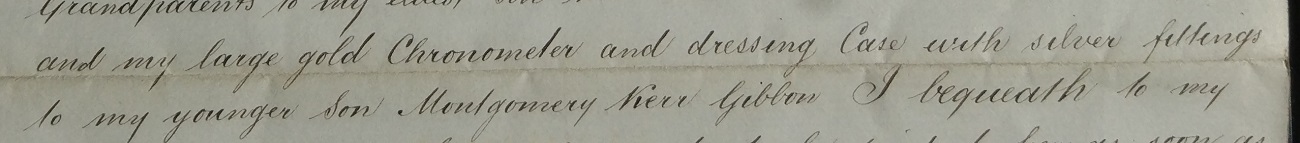 Grandparents to my eldest son
and my large gold Chronometer and dressing Case with silver fittings
to my younger Son Montgomery Kerr Gibbon I bequeath to my
as soon as